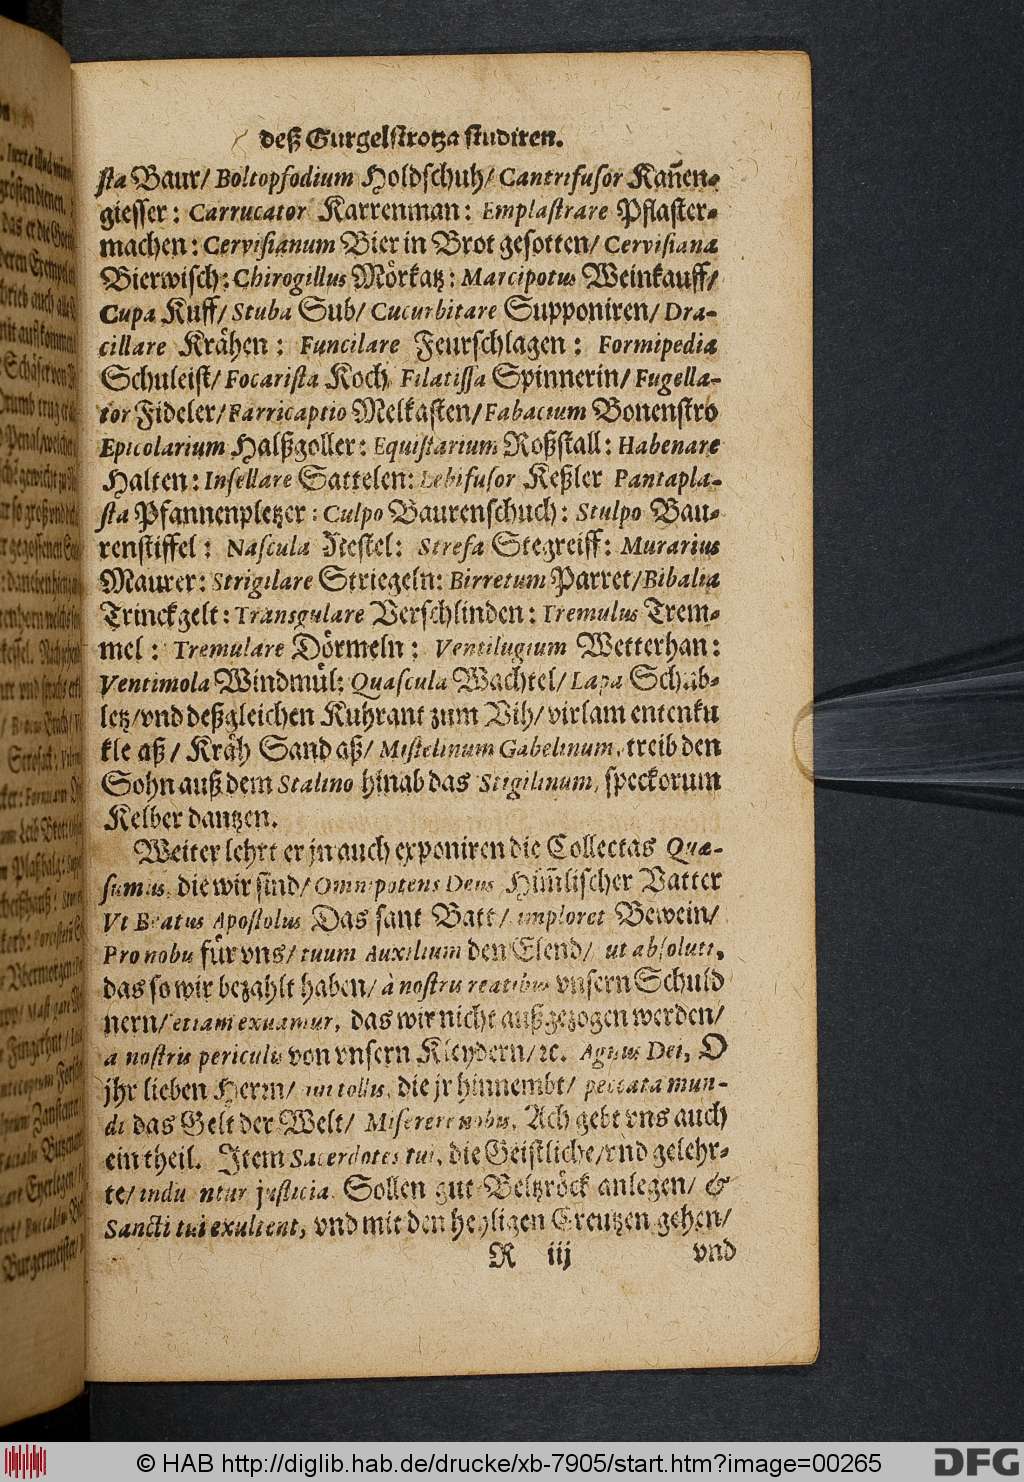 deß Gurgelstrotza studiren.
sta Baur/ Boltopfodium Holdschuh/ Cantrifusor Kañen-
giesser: Carrucator Karrenman: Emplastrare Pflaster-
machen: Cervisianum Bier in Brot gesotten/ Cervisiana
Bierwisch: Chirogillus Mörkatz: Marcipotus Weinkauff/
Cupa Kuff/ Stuba Sub/ Cucurbitare Supponiren/ Dra-
cillare Krähen: Funcilare Feurschlagen: Formipedia
Schuleist/ Focarista Koch, Filatissa Spinnerin/ Fugella-
tor Fideler/ Farricaptio Melkasten/ Fabacium Bonenstro
Epicolarium Halßgoller: Equistarium Roßstall: Habenare
Halten: Insellare Sattelen: Lebifusor Keßler Pantapla-
sta Pfannenpletzer: Culpo Baurenschuch: Stulpo Bau-
renstiffel: Nascula Nestel: Strefa Stegreiff: Murarius
Maurer: Strigilare Striegeln: Birretum Parret/ Bibalia
Trinckgelt: Transgulare Verschlinden: Tremulus Trem-
mel: Tremulare Dörmeln: Ventilugium Wetterhan:
Ventimola Windmül: Quascula Wachtel/ Lapa Schab-
letz/ vnd deßgleichen Kuhrant zum Vih/ virlam entenku
kle aß/ Kräh Sand aß/ Mistelinum Gabelinum, treib den
Sohn auß dem Stalino hinab das Stigilinum, speckorum
Kelber dantzen.
Weiter lehrt er jn auch exponiren die Collectas Quæ-
sumus, die wir sind/ Omnipotens Deus Him̃lischer Vatter
Vt Beatus Apostolus Das sant Batt/ imploret Bewein/
Pro nobis für vns/ tuum Auxilium den Elend/ ut absoluti,
das so wir bezahlt haben/ à nostris reatibus vnsern Schuld
nern/ etiam exuamur, das wir nicht außgezogen werden/
a nostris periculis von vnsern Kleydern/ ꝛc. Agnus Dei, O
jhr lieben Herrn/ qui tollis, die jr hinnembt/ peccata mun-
di das Gelt der Welt/ Miserere nobis, Ach gebt vns auch
ein theil. Item Sacerdotes tui, die Geistliche/ vnd gelehr-
te/ induantur justicia Sollen gut Beltzröck anlegen/ &
Sancti tui exultent, vnd mit den heyligen Creutzen gehen/
R iij vnd
© HAB http://diglib.hab.de/drucke/xb-7905/start.htm?image=00265
DFG